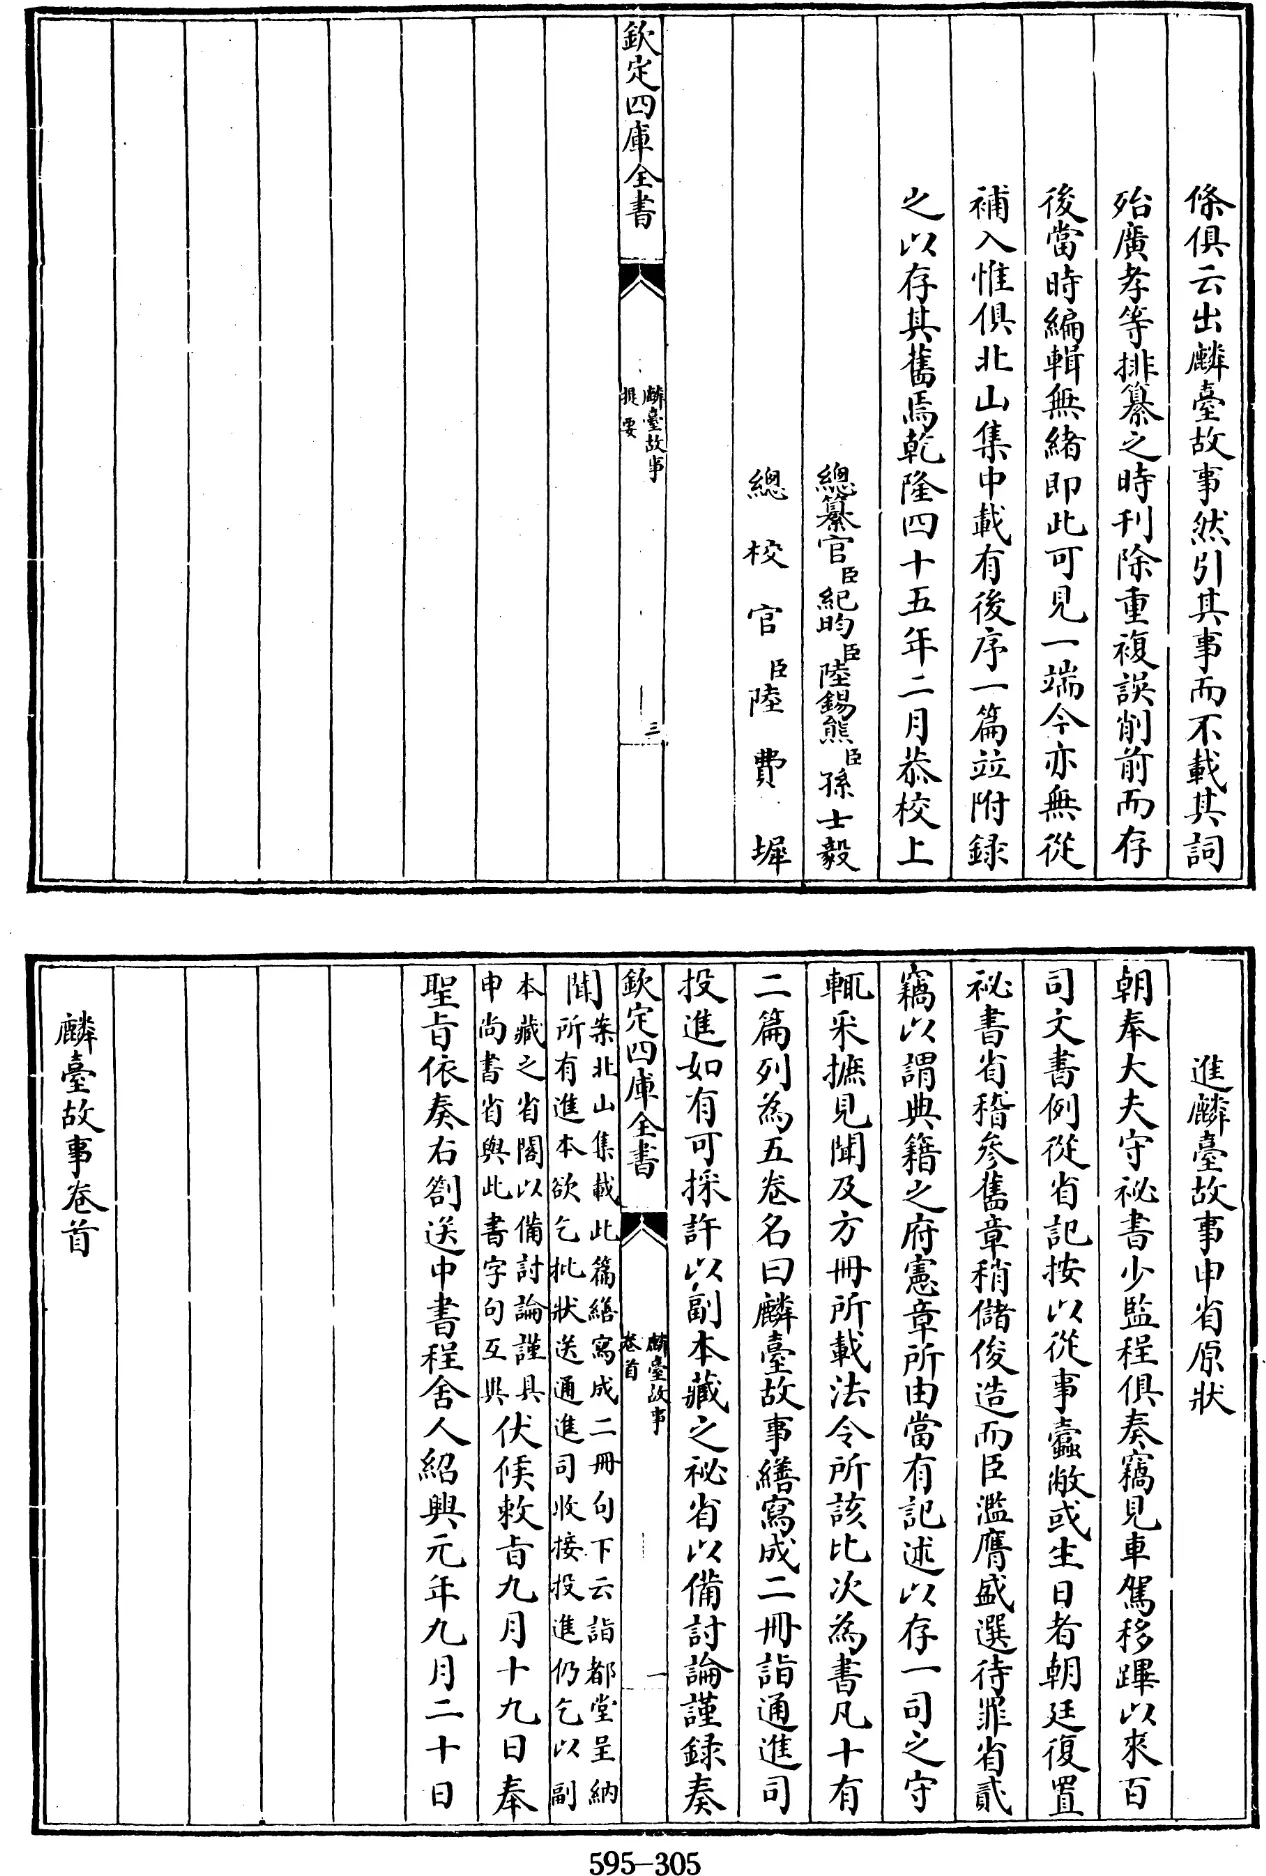 條俱云出麟臺故事然引其事而不載其詞
殆廣孝等排纂之時刊除重複誤削前而存
後當時編輯無緒即此可見一端今亦無從
補入惟俱北山集中載有後序一篇竝附録
之以存其舊焉乾隆四十五年二月恭校上
總纂官臣紀昀臣陸錫熊臣孫士毅
總校官臣陸費墀
欽定四庫全書
麟臺故事
提要
三
進麟臺故事申省原狀
朝奉大夫守祕書少監程俱奏竊見車駕移蹕以來百
司文書例從省記按以從事蠧敝或生日者朝廷復置
祕書省稽參舊章稍儲俊造而臣濫膺盛選待罪省貳
竊以謂典籍之府憲章所由當有記述以存一司之守
輒采摭見聞及方冊所載法令所該比次為書凡十有
二篇列為五卷名曰麟臺故事繕寫成二冊詣通進司
投進如有可採許以副本藏之祕省以備討論謹録奏
欽定四庫全書
麟臺故事
卷首
一
聞案北山集載此篇繕寫成二冊句下云詣都堂呈納
所有進本欲乞批狀送通進司收接投進仍乞以副
本藏之省閣以備討論謹具
申尚書省與此書字句互異
伏候敕旨九月十九日奉
聖旨依奏右劄送中書程舍人紹興元年九月二十日
麟臺故事卷首
595-305